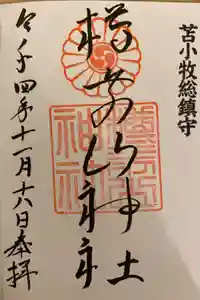 苫小牧総鎮守
樽前山神社
令和四年十一月十六日奉拝
樽前山
神社